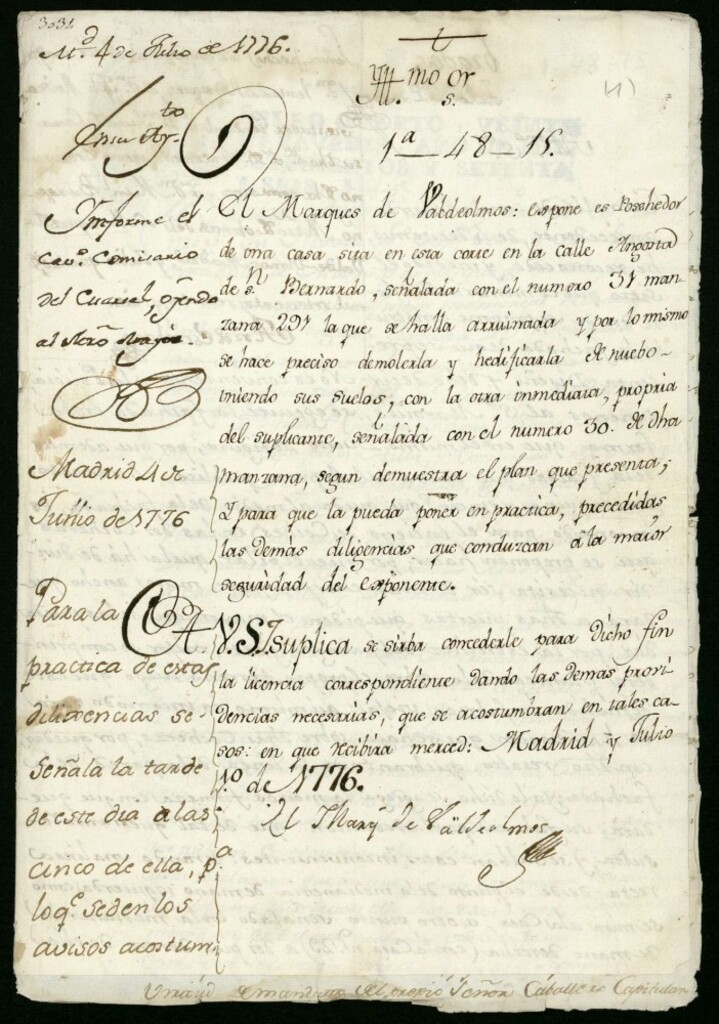 3031
M.d 4 de Julio de 1776.
Yll.mo S.or
1a_48_15.
Ymforme el
Cavo. Comisario
del Cuartel, oyendo
al Mtro mayor.
El Marques de Valdeolmos: espone es Poshedor
de una casa sita en esta corte en la calle Angosta
de s.n Bernardo, señalada con el numero 31 man
zana 291 la que se halla arruinada y por lo mismo
se hace preciso demolerla y hedificarla de nuebo
uniendo sus suelos, con la otra inmediata, propria
del suplicante, señalada con el numero 30. de dha
manzana, segun demuestra el plan que presenta;
Y para que la pueda poner en practica, precedidas
las demas diligencias que conduzcan a la maior
seguridad del esponente.
A V.S.I. suplica se sirba concederle para dicho fin
la licencia correspondiente dando las demas provi
dencias necesarias, que se acostumbran en tales ca
sos: en que recibira merced: Madrid y Julio
1.o de 1776.
El Marq.s de Valdeolmos
Madrid 4 de
Julio de 1776
Para la
practica de estas
diligencias se
señala la tarde
de este dia a las
cinco de ella, p.a
lo q.e se den los
avisos acostum
mandato del propio Señor Caballero Capitular